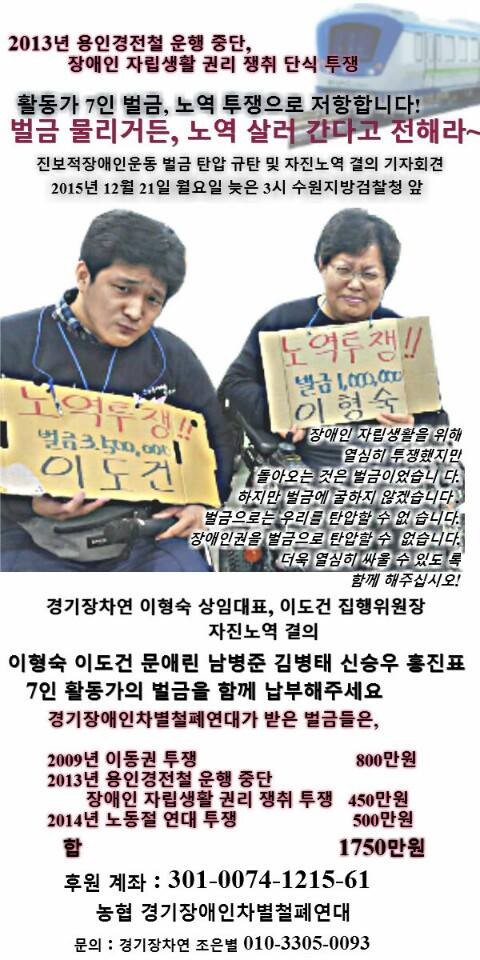 2013년 용인경전철 운행 중단,
장애인 자립생활 권리 쟁취 단식 투쟁
활동가 7인 벌금, 노역 투쟁으로 저항합니다!
벌금 물리거든, 노역 살러 간다고 전해라~
진보적장애인운동 벌금 탄압 규탄 및 자진노역 결의 기자회견
2015년 12월 21일 월요일 늦은 3시 수원지방검찰청 앞
노역투쟁!!
벌금3,500,000
이도건
노역투쟁!!
벌금1,000,000
이형숙
장애인 자립생활을 위해
열심히 투쟁했지만
돌아오는 것은 벌금이었습니 다.
하지만 벌금에 굴하지 않겠습니다.
벌금으로는 우리를 탄압할 수 없 습니다.
장애인권을 벌금으로 탄압할 수 없습니다.
더욱 열심히 싸울 수 있도 록
함께 해주십시오!
경기장차연 이형숙 상임대표, 이도건 집행위원장
자진노역 결의
이형숙 이도건 문애린 남병준 김병태 신승우 홍진표
7인 활동가의 벌금을 함께 납부해주세요
경기장애인차별철폐연대가 받은 벌금들은,
2009년 이동권 투쟁 800만원
2013년 용인경전철 운행 중단
장애인 자립생활 권리 쟁취 투쟁 450만원
2014년 노동절 연대 투쟁 500만원
합 1750만원
후원 계좌 : 301-0074-1215-61
농협 경기장애인차별철폐연대
문의 : 경기장차연 조은별 010-3305-0093